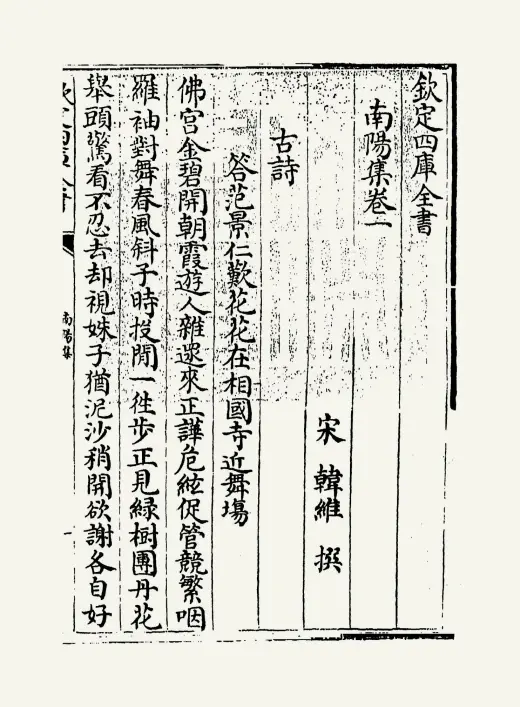 欽定四庫全書
南陽集卷二
宋 韓維 撰
古詩
答范景仁歎花花在相國寺近舞塲
佛宫金碧開朝霞遊人雜遝來正譁危絃促管競繁咽
羅袖對舞春風斜子時投閒一徃步正見緑樹團丹花
舉頭驚看不忍去却視姝子猶泥沙稍開欲謝各自好
欽定四庫全書
南陽集
一